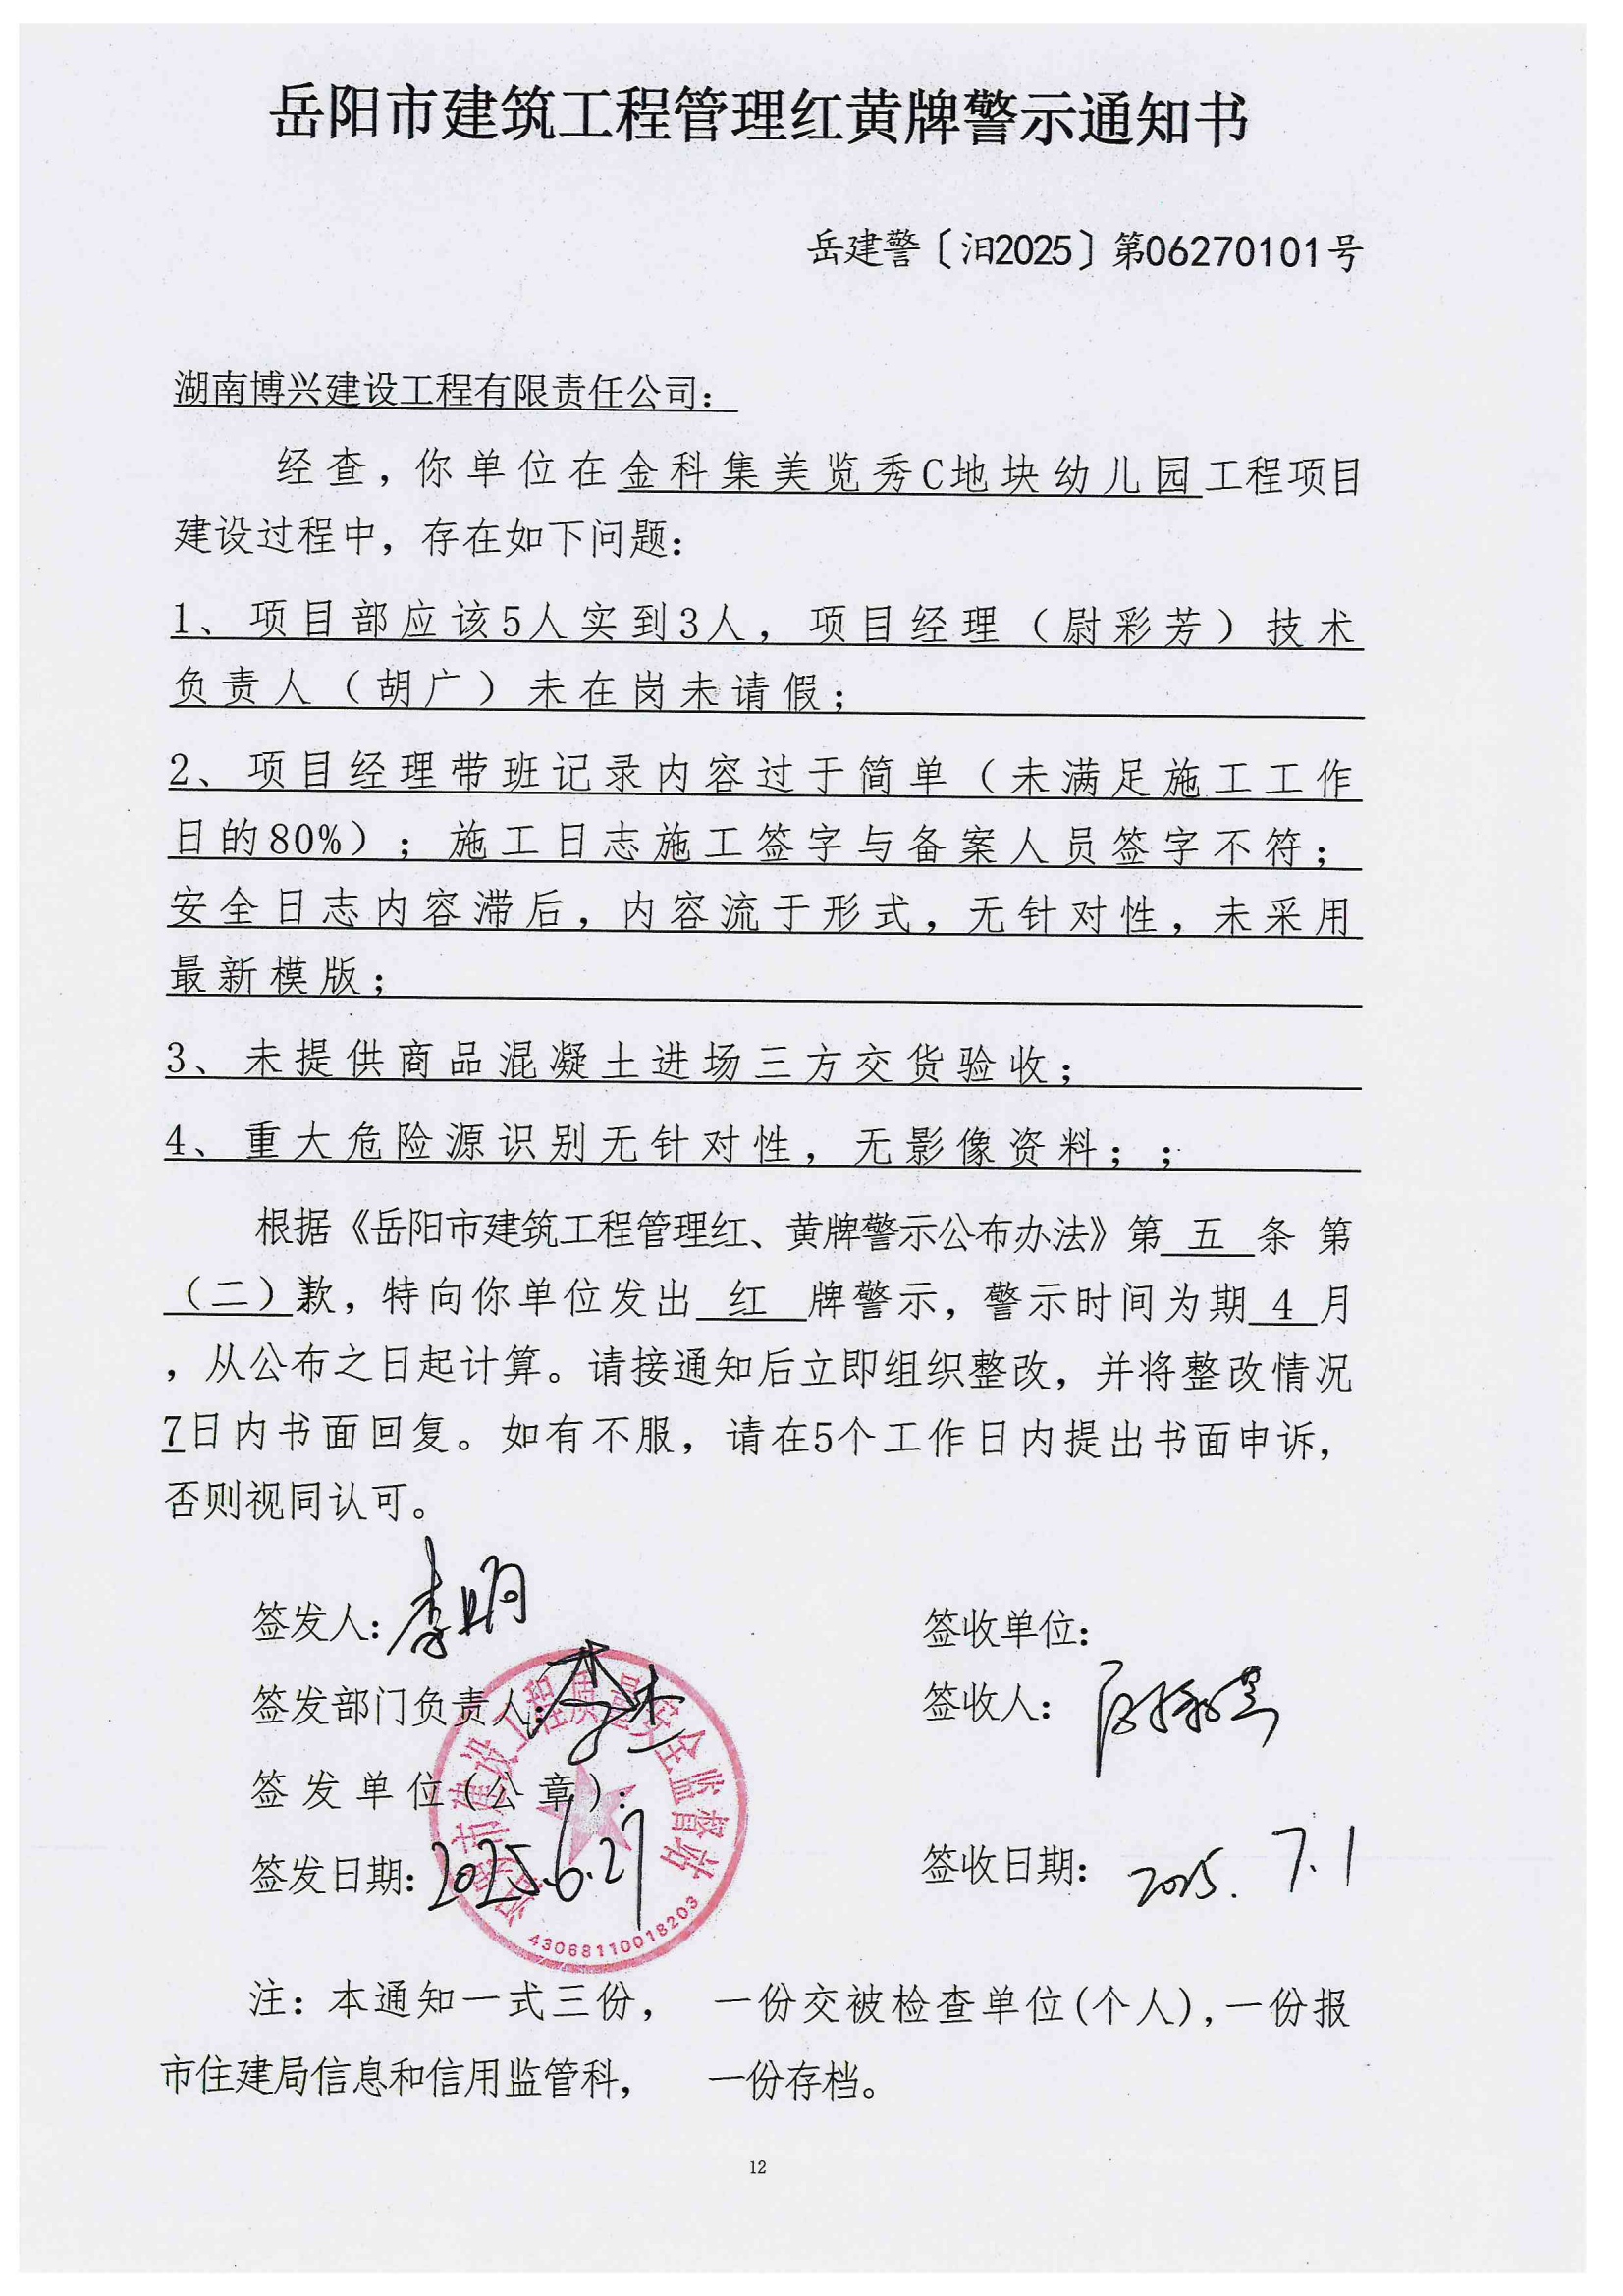 岳阳市建筑工程管理红黄牌警示通知书
岳建警〔汨2025〕第06270101号
湖南博兴建设工程有限责任公司：
经查，你单位在金科集美览秀C地块幼儿园工程项目
建设过程中，存在如下问题：
1、项目部应该5人实到3人，项目经理（尉彩芳）技术
负责人（胡广）未在岗未请假；
2、项目经理带班记录内容过于简单（未满足施工工作
日的80%）；施工日志施工签字与备案人员签字不符；
安全日志内容滞后，内容流于形式，无针对性，未采用
最新模版；
3、未提供商品混凝土进场三方交货验收；
4、重大危险源识别无针对性，无影像资料；；
根据《岳阳市建筑工程管理红、黄牌警示公布办法》第 五 条 第
（二）款，特向你单位发出 红 牌警示，警示时间为期 4 月
，从公布之日起计算。请接通知后立即组织整改，并将整改情况
7日内书面回复。如有不服，请在5个工作日内提出书面申诉，
否则视同认可。
签发人：李明
签收单位：
签发部门负责人：李杰
签收人：
签发单位（公章）：
汨罗市建设工程质量安全监督站
签发日期：2025.6.27
签收日期：2025.7.1
43068110018203
注：本通知一式三份， 一份交被检查单位(个人),一份报
市住建局信息和信用监管科， 一份存档。
12